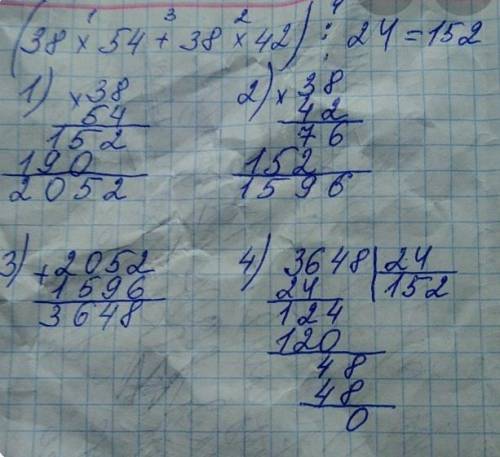 1 3 2 4
(38 × 54 + 38 × 42) : 24 = 152
1) × 38
54
152
190
2052
2) × 38
42
76
152
1596
3) + 2052
1596
3648
4) 3648 | 24
24 | 152
124
120
48
48
0